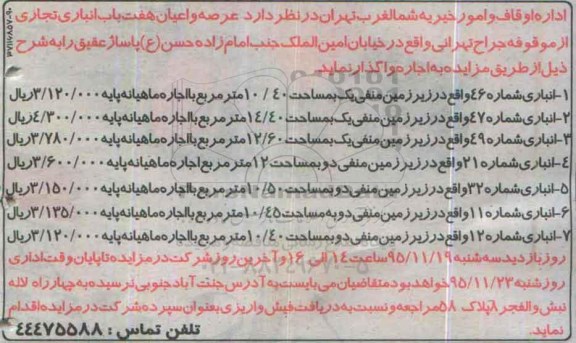 اداره اوقاف و امور خیریه شمالغرب تهران در نظر دارد عرصه و اعیان هفت باب انباری تجاری
از موقوفه جراح تهرانی واقع در خیابان امین الملک جنب امام زاده حسن (ع) پاساژ عقیق را به شرح
ذیل از طریق مزایده به اجاره واگذار نماید.
۱-انباری شماره ۴۶ واقع در زیر زمین منفی یک بمساحت ۱۰/۴۰ متر مربع با اجاره ماهیانه پایه ۳/۱۲۰/۰۰۰ ریال
۲-انباری شماره ۴۷ واقع در زیر زمین منفی یک بمساحت ۱۴/۴۰ متر مربع با اجاره ماهیانه پایه ۴/۳۰۰/۰۰۰ ریال
۳-انباری شماره ۴۹ واقع در زیر زمین منفی یک بمساحت ۱۲/۶۰ متر مربع با اجاره ماهیانه پایه ۳/۷۸۰/۰۰۰ ریال
۴-انباری شماره ۲۱ واقع در زیر زمین منفی دو بمساحت ۱۲ متر مربع با اجاره ماهیانه پایه ۳/۶۰۰/۰۰۰ ریال
۵-انباری شماره ۳۲ واقع در زیر زمین منفی دو بمساحت ۱۰/۵۰ متر مربع با اجاره ماهیانه پایه ۳/۱۵۰/۰۰۰ ریال
۶-انباری شماره ۱۱ واقع در زیر زمین منفی دو به مساحت ۱۰/۴۵ متر مربع با اجاره ماهیانه پایه ۳/۱۳۵/۰۰۰ ریال
۷-انباری شماره ۱۲ واقع در زیر زمین منفی دو بمساحت ۱۰/۴۰ متر مربع با اجاره ماهیانه پایه ۳/۱۲۰/۰۰۰ ریال
روز بازدید سه شنبه ۹۵/۱۱/۱۹ ساعت ۱۴ الی ۱۶ و آخرین روز شرکت در مزایده تا پایان وقت اداری
روز شنبه ۹۵/۱۱/۲۳ خواهد بود متقاضیان می بایست به آدرس جنت آباد جنوبی نرسیده به چهار راه لاله
نبش والفجر ۸ پلاک ۵۸ مراجعه و نسبت به دریافت فیش واریزی بعنوان سپرده شرکت در مزایده اقدام
نماید.
تلفن تماس : ۴۴۴۷۵۵۸۸